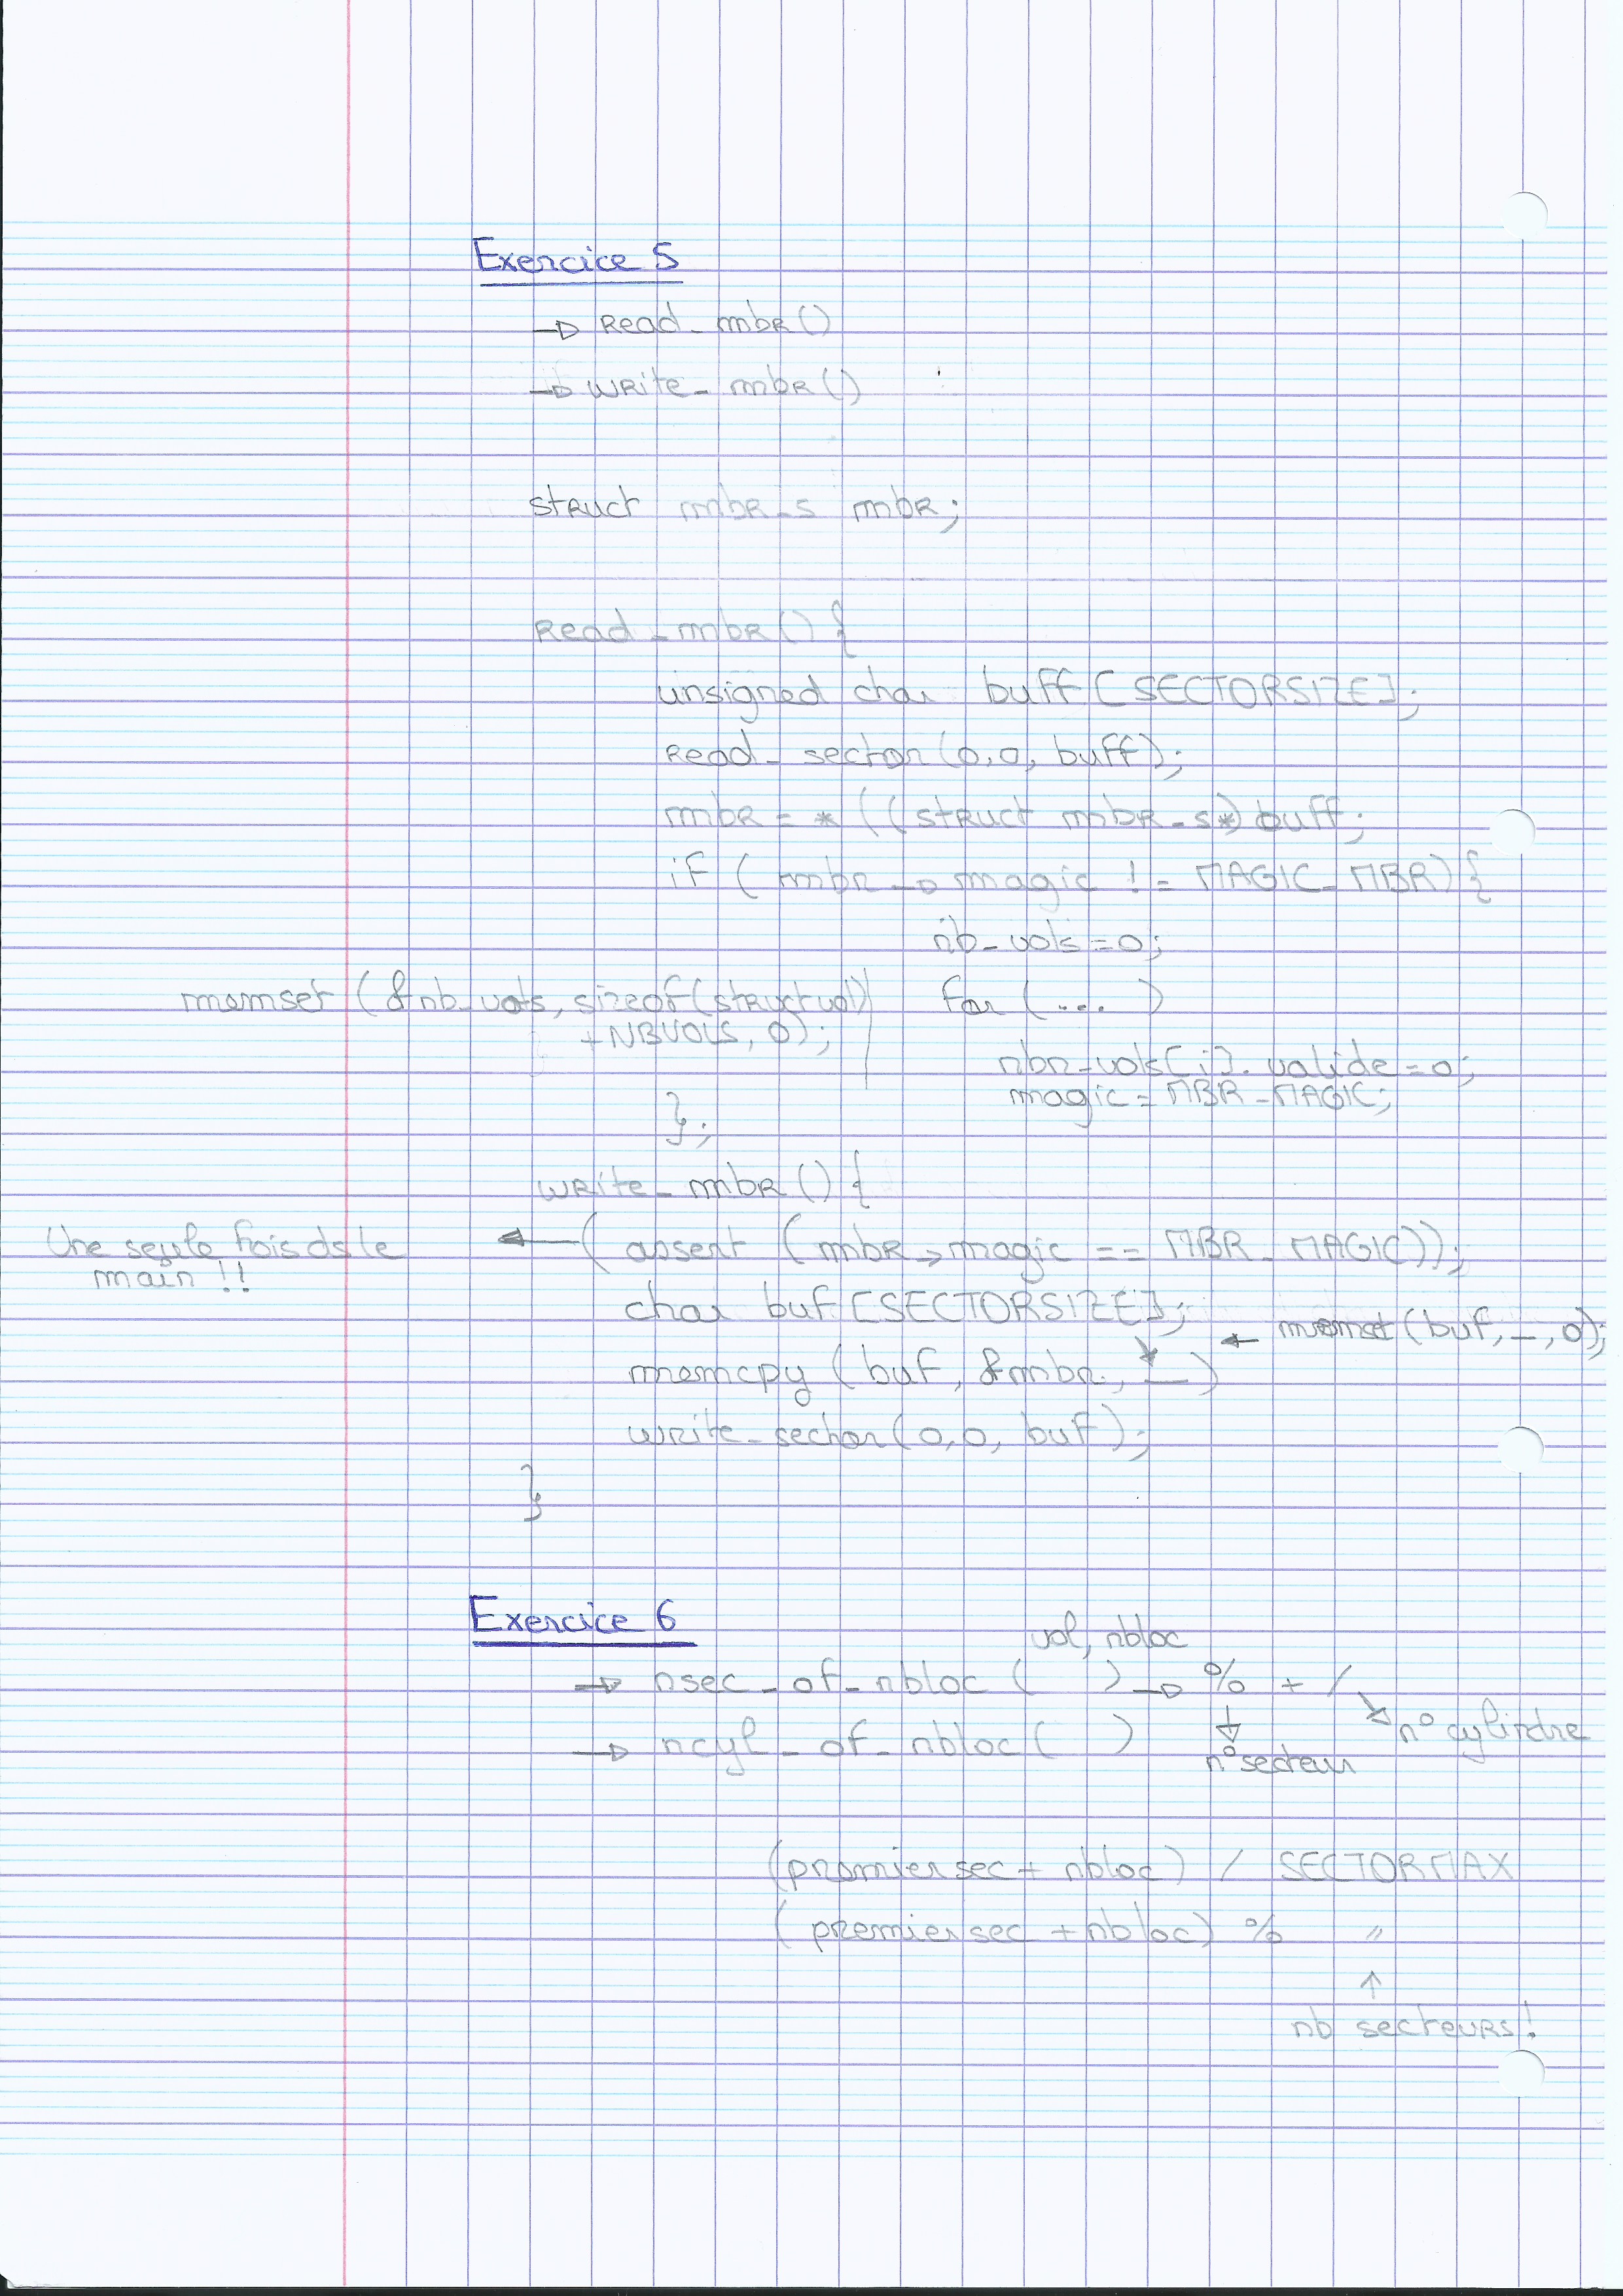 Exercice 5
→ Read_mbR()
→ WRite_mbR()
struct mbR_s mbR;
Read_mbR() {
unsigned char buff[SECTORSIZE];
Read_sector(0,0, buff);
mbR = *((struct mbR_s*) buff;
if (mbr → magic != MAGIC_MBR) {
nb_vols = 0;
memset (&nb_vols, sizeof(struct vol)
+ NBVOLS, 0);
for (.... )
mbr_vols[i]. valide = 0;
magic = MBR_MAGIC;
};
WRite_mbR() {
Une seule fois ds le
main !!
← (assert (mbR → magic == MBR_MAGIC));
char buf [SECTORSIZE];
← memset (buf, _, 0);
memcpy (buf, &mbr, __)
write_sector(0,0, buf);
}
Exercice 6
vol, nbloc
→ nsec_of_nbloc ( ) → % + /
→ ncyl_of_nbloc ( )
n° cylindre
n° secteur
(premier sec + nbloc) / SECTORMAX
(premier sec + nbloc) % "
↑
nb secteurs !